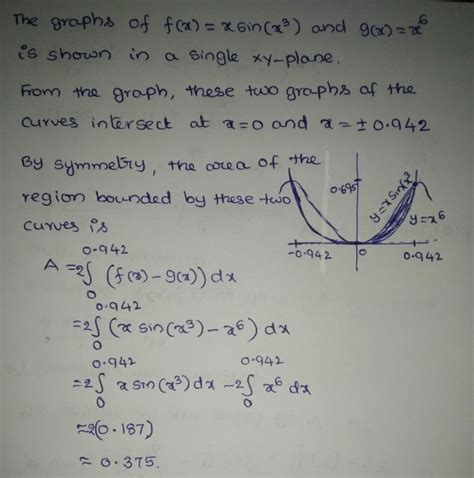 The graphs of f(x) = x sin(x³) and g(x) = x⁶
is shown in a single xy-plane.
From the graph, these two graphs of the
curves intersect at x=0 and x = ± 0.942
By symmetry, the area of the
region bounded by these two
curves is
0.695
y = x sin x³
y = x⁶
-0.942 0 0.942
A = 2∫₀^0.942 (f(x) - g(x)) dx
= 2∫₀^0.942 (x sin(x³) - x⁶) dx
= 2∫₀^0.942 x sin(x³) dx - 2∫₀^0.942 x⁶ dx
≈ 2(0.187)
≈ 0.375.